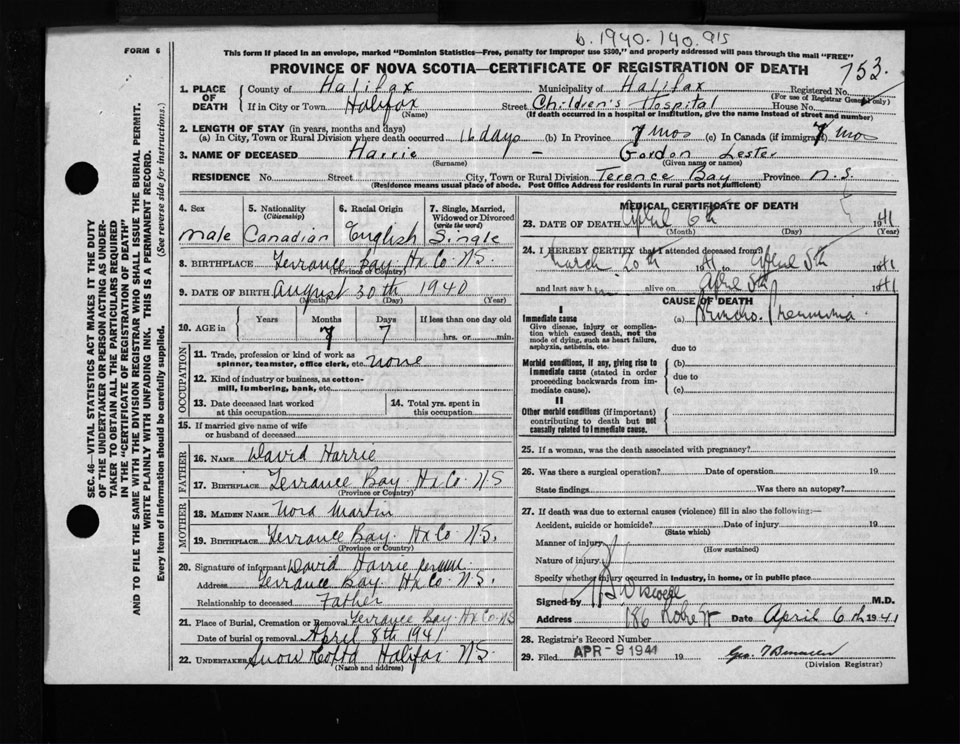 b. 1940-140.915
FORM 6
This form if placed in an envelope, marked "Dominion Statistics—Free, penalty for improper use $300," and properly addressed will pass through the mail "FREE"
PROVINCE OF NOVA SCOTIA—CERTIFICATE OF REGISTRATION OF DEATH
753.
SEC. 46—VITAL STATISTICS ACT MAKES IT THE DUTY
OF THE UNDERTAKER OR PERSON ACTING AS UNDER-
TAKER TO OBTAIN ALL THE PARTICULARS REQUIRED
IN THE "CERTIFICATE OF REGISTRATION OF DEATH"
AND TO FILE THE SAME WITH THE DIVISION REGISTRAR WHO SHALL ISSUE THE BURIAL PERMIT.
WRITE PLAINLY WITH UNFADING INK. THIS IS A PERMANENT RECORD.
Every item of information should be carefully supplied. (See reverse side for instructions.)
1. PLACE OF DEATH County of Halifax Municipality of Halifax Registered No.
(For use of Registrar General only)
If in City or Town Halifax (Name) Street Children's Hospital House No.
(If death occurred in a hospital or institution, give the name instead of street and number)
2. LENGTH OF STAY (in years, months and days)
(a) In City, Town or Rural Division where death occurred 16 days (b) In Province 7 mos (c) In Canada (if immigrant) 7 mos
3. NAME OF DECEASED Harrie - Gordon Lester
(Surname) (Given name or names)
RESIDENCE No. Street City, Town or Rural Division Terence Bay Province N.S.
(Residence means usual place of abode. Post Office Address for residents in rural parts not sufficient)
4. Sex 5. Nationality (Citizenship) 6. Racial Origin 7. Single, Married, Widowed or Divorced (write the word)
Male Canadian English Single
8. BIRTHPLACE Terrance Bay Hx Co. N.S.
(Province or Country)
9. DATE OF BIRTH August 30th 1940
(Month) (Day) (Year)
10. AGE in Years Months Days If less than one day old
7 7 hrs. or min.
OCCUPATION
11. Trade, profession or kind of work as
spinner, teamster, office clerk, etc. None
12. Kind of industry or business, as cotton-
mill, lumbering, bank, etc.
13. Date deceased last worked
at this occupation
14. Total yrs. spent in
this occupation
15. If married give name of wife
or husband of deceased
FATHER
16. NAME David Harrie
17. BIRTHPLACE Terrance Bay Hx Co. N.S
(Province or Country)
MOTHER
18. MAIDEN NAME Nora Martin
19. BIRTHPLACE Terrance Bay. Hx Co N.S.
(Province or Country)
20. Signature of informant David Harrie
Address Terrance Bay. Hx Co. N.S.
Relationship to deceased Father
21. Place of Burial, Cremation or Removal Terrance Bay Hx Co NS
Date of burial or removal April 8th 1941
22. UNDERTAKER Snow Halifax N.S.
(Name and address)
MEDICAL CERTIFICATE OF DEATH
23. DATE OF DEATH April 6th 1941
(Month) (Day) (Year)
24. I HEREBY CERTIFY that I attended deceased from
March 20th 1941 to April 5th 1941
and last saw him alive on April 5th 1941
CAUSE OF DEATH
I
Immediate cause (a) Broncho. Pneumonia
Give disease, injury or complica-
tion which caused death, not the
mode of dying, such as heart failure,
asphyxia, asthenia, etc.
due to
Morbid conditions, if any, giving rise to
immediate cause (stated in order
proceeding backwards from im-
mediate cause).
(b)
due to
(c)
II
Other morbid conditions (if important)
contributing to death but not
causally related to immediate cause.
25. If a woman, was the death associated with pregnancy?
26. Was there a surgical operation? Date of operation 19
State findings Was there an autopsy?
27. If death was due to external causes (violence) fill in also the following:—
Accident, suicide or homicide? Date of injury 19
(State which)
Manner of injury
(How sustained)
Nature of injury
Specify whether injury occurred in industry, in home, or in public place
Signed by M.D.
Address 186 Robie St Date April 6th 1941
28. Registrar's Record Number
29. Filed APR - 9 1941 19
(Division Registrar)